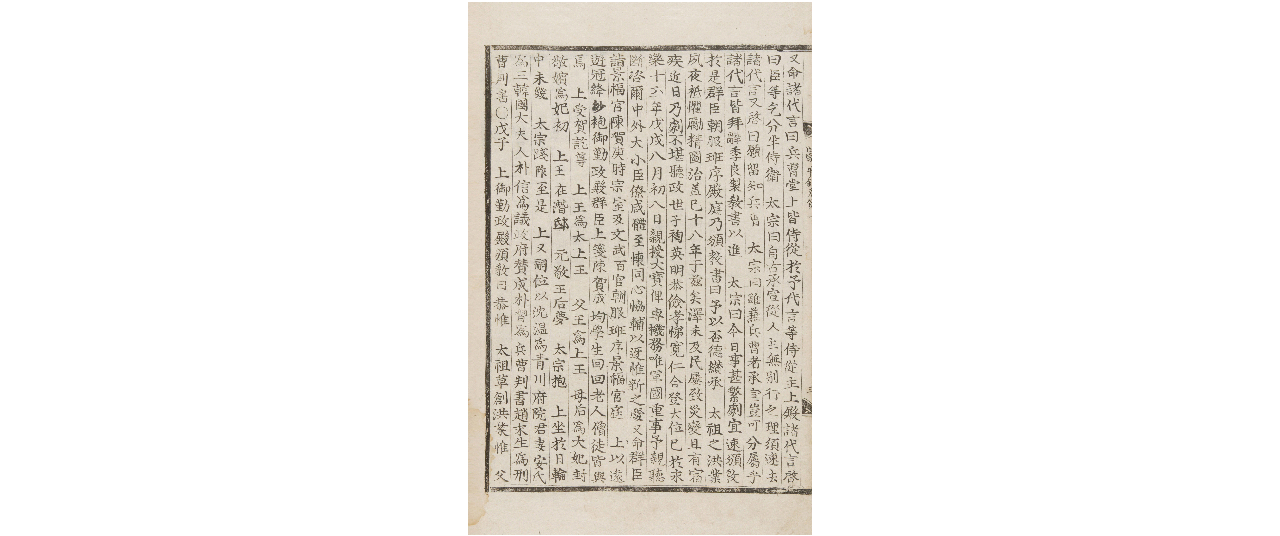 又命諸代言曰兵曹堂上皆侍從於予代言等侍從主上殿諸代言啓
曰臣等乞分半侍衛 太宗曰自古承宣從人主無別行之理須速去
諸代言又啓曰願留知兵曹 太宗曰雖兼兵曹者承宣豈可分屬乎
諸代言皆拜辭季良製敎書以進 太宗曰今日事甚繁劇宜速頒敎
於是群臣朝服班序殿庭乃頒敎書曰予以否德纘承 太祖之洪業
夙夜祗懼勵精圖治蓋已十八年于玆矣澤未及民屢致災變且有宿
疾近日乃劇不堪聽政世子裪英明恭儉孝悌寬仁合登大位已於永
樂十六年戊戌八月初八日親授大寶俾專機務唯軍國重事予親聽
斷咨爾中外大小臣僚咸體至懷同心協輔以迓維新之慶又命群臣
詣景福宮陳賀庚時宗室及文武百官朝服班序景福宮庭 上以遠
遊冠絳紗袍御勤政殿群臣上箋陳賀成均學生回回老人僧徒皆與
焉 上受賀訖尊 上王爲太上王 父王爲上王 母后爲大妃封
敬嬪爲妃初 上王在潛邸 元敬王后夢 太宗抱 上坐於日輪
中未幾 太宗踐阼至是 上又嗣位以沈溫爲青川府院君妻安氏
爲三韓國大夫人朴信爲議政府贊成朴習爲兵曹判書趙末生爲刑
曹判書○戊子 上御勤政殿頒敎曰恭惟 太祖草創洪業惟 父